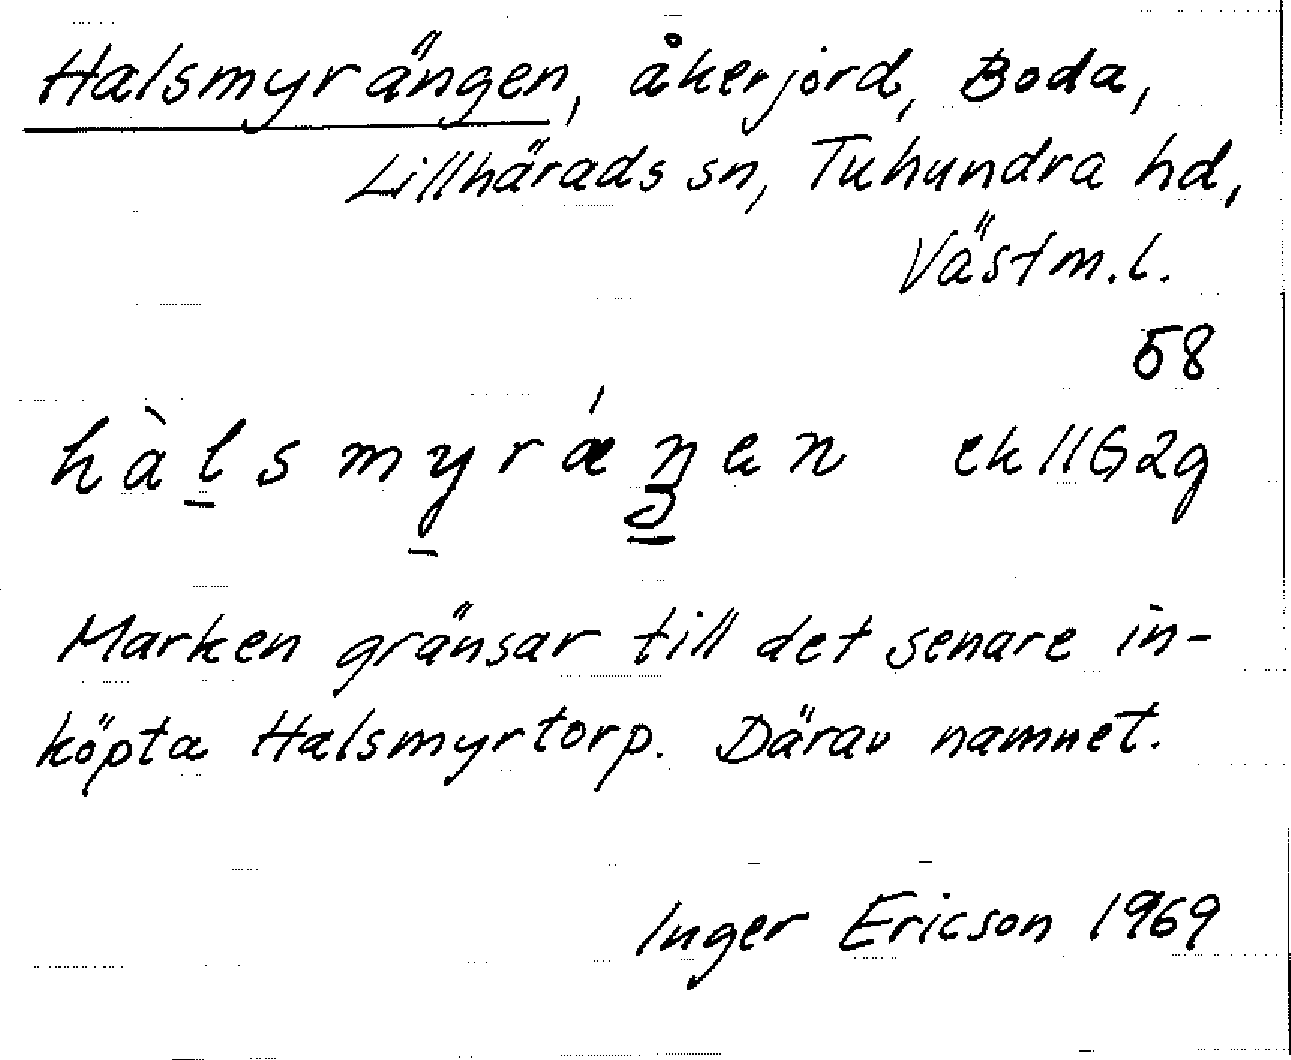 Halsmyrängen, åkerjord, Boda,
Lillhärads sn, Tuhundra hd,
Västm.l.
58
hàlsmyrǽŋen ek 11G2g
Marken gränsar till det senare in-
köpta Halsmyrtorp. Därav namnet.
Inger Ericson 1969